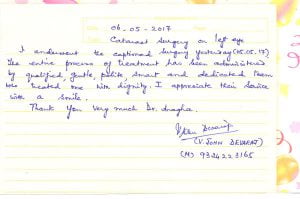 06.05-2017
Cataract Surgery on left eye
I underwent the captioned surgery yesterday (05.05.17)
The entire process of treatment has been administered
by qualified, gentle, polite, smart and dedicated Team
was treated me with dignity. I appreciate their service
with a smile.
Thank You very much Dr. Anagha.
(V. JOHN DEVARAJ)
(M) 9384223165